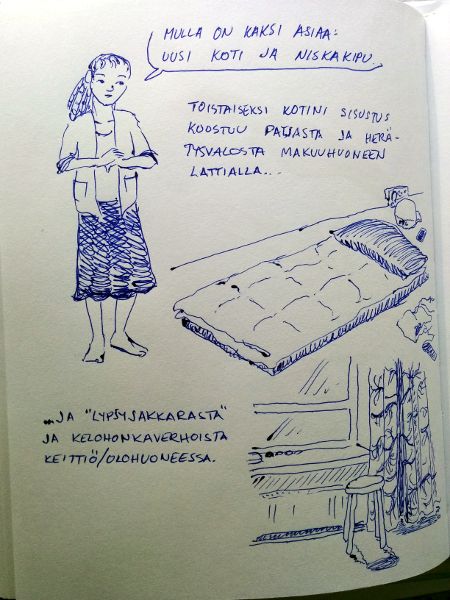 MULLA ON KAKSI ASIAA:
UUSI KOTI JA NISKAKIPU.
TOISTAISEKSI KOTINI SISUSTUS
KOOSTUU PATJASTA JA HERÄ-
TYSVALOSTA MAKUUHUONEEN
LATTIALLA...
...JA "LYPSYJAKKARASTA"
JA KELOHONKAVERHOISTA
KEITTIÖ/OLOHUONEESSA.